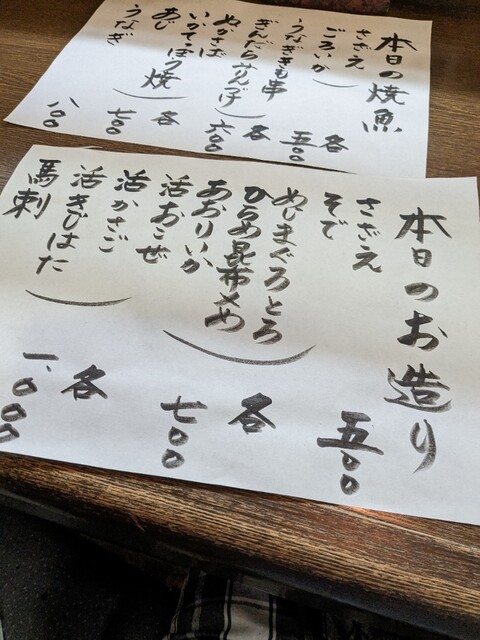 本日の焼魚
さざえ
ごろいか
各
五〇〇
うなぎきも串
ぎんだらみりんづけ
各
六〇〇
ぬかさば
いかてっぽう焼
各
七〇〇
あじ
うなぎ
八〇〇
本日のお造り
さざえ
そで
五〇〇
めじまぐろとろ
ひらめ昆布〆め
あおりいか
各
七〇〇
活おこぜ
活かさご
活きじはた
各
馬刺
一、〇〇〇